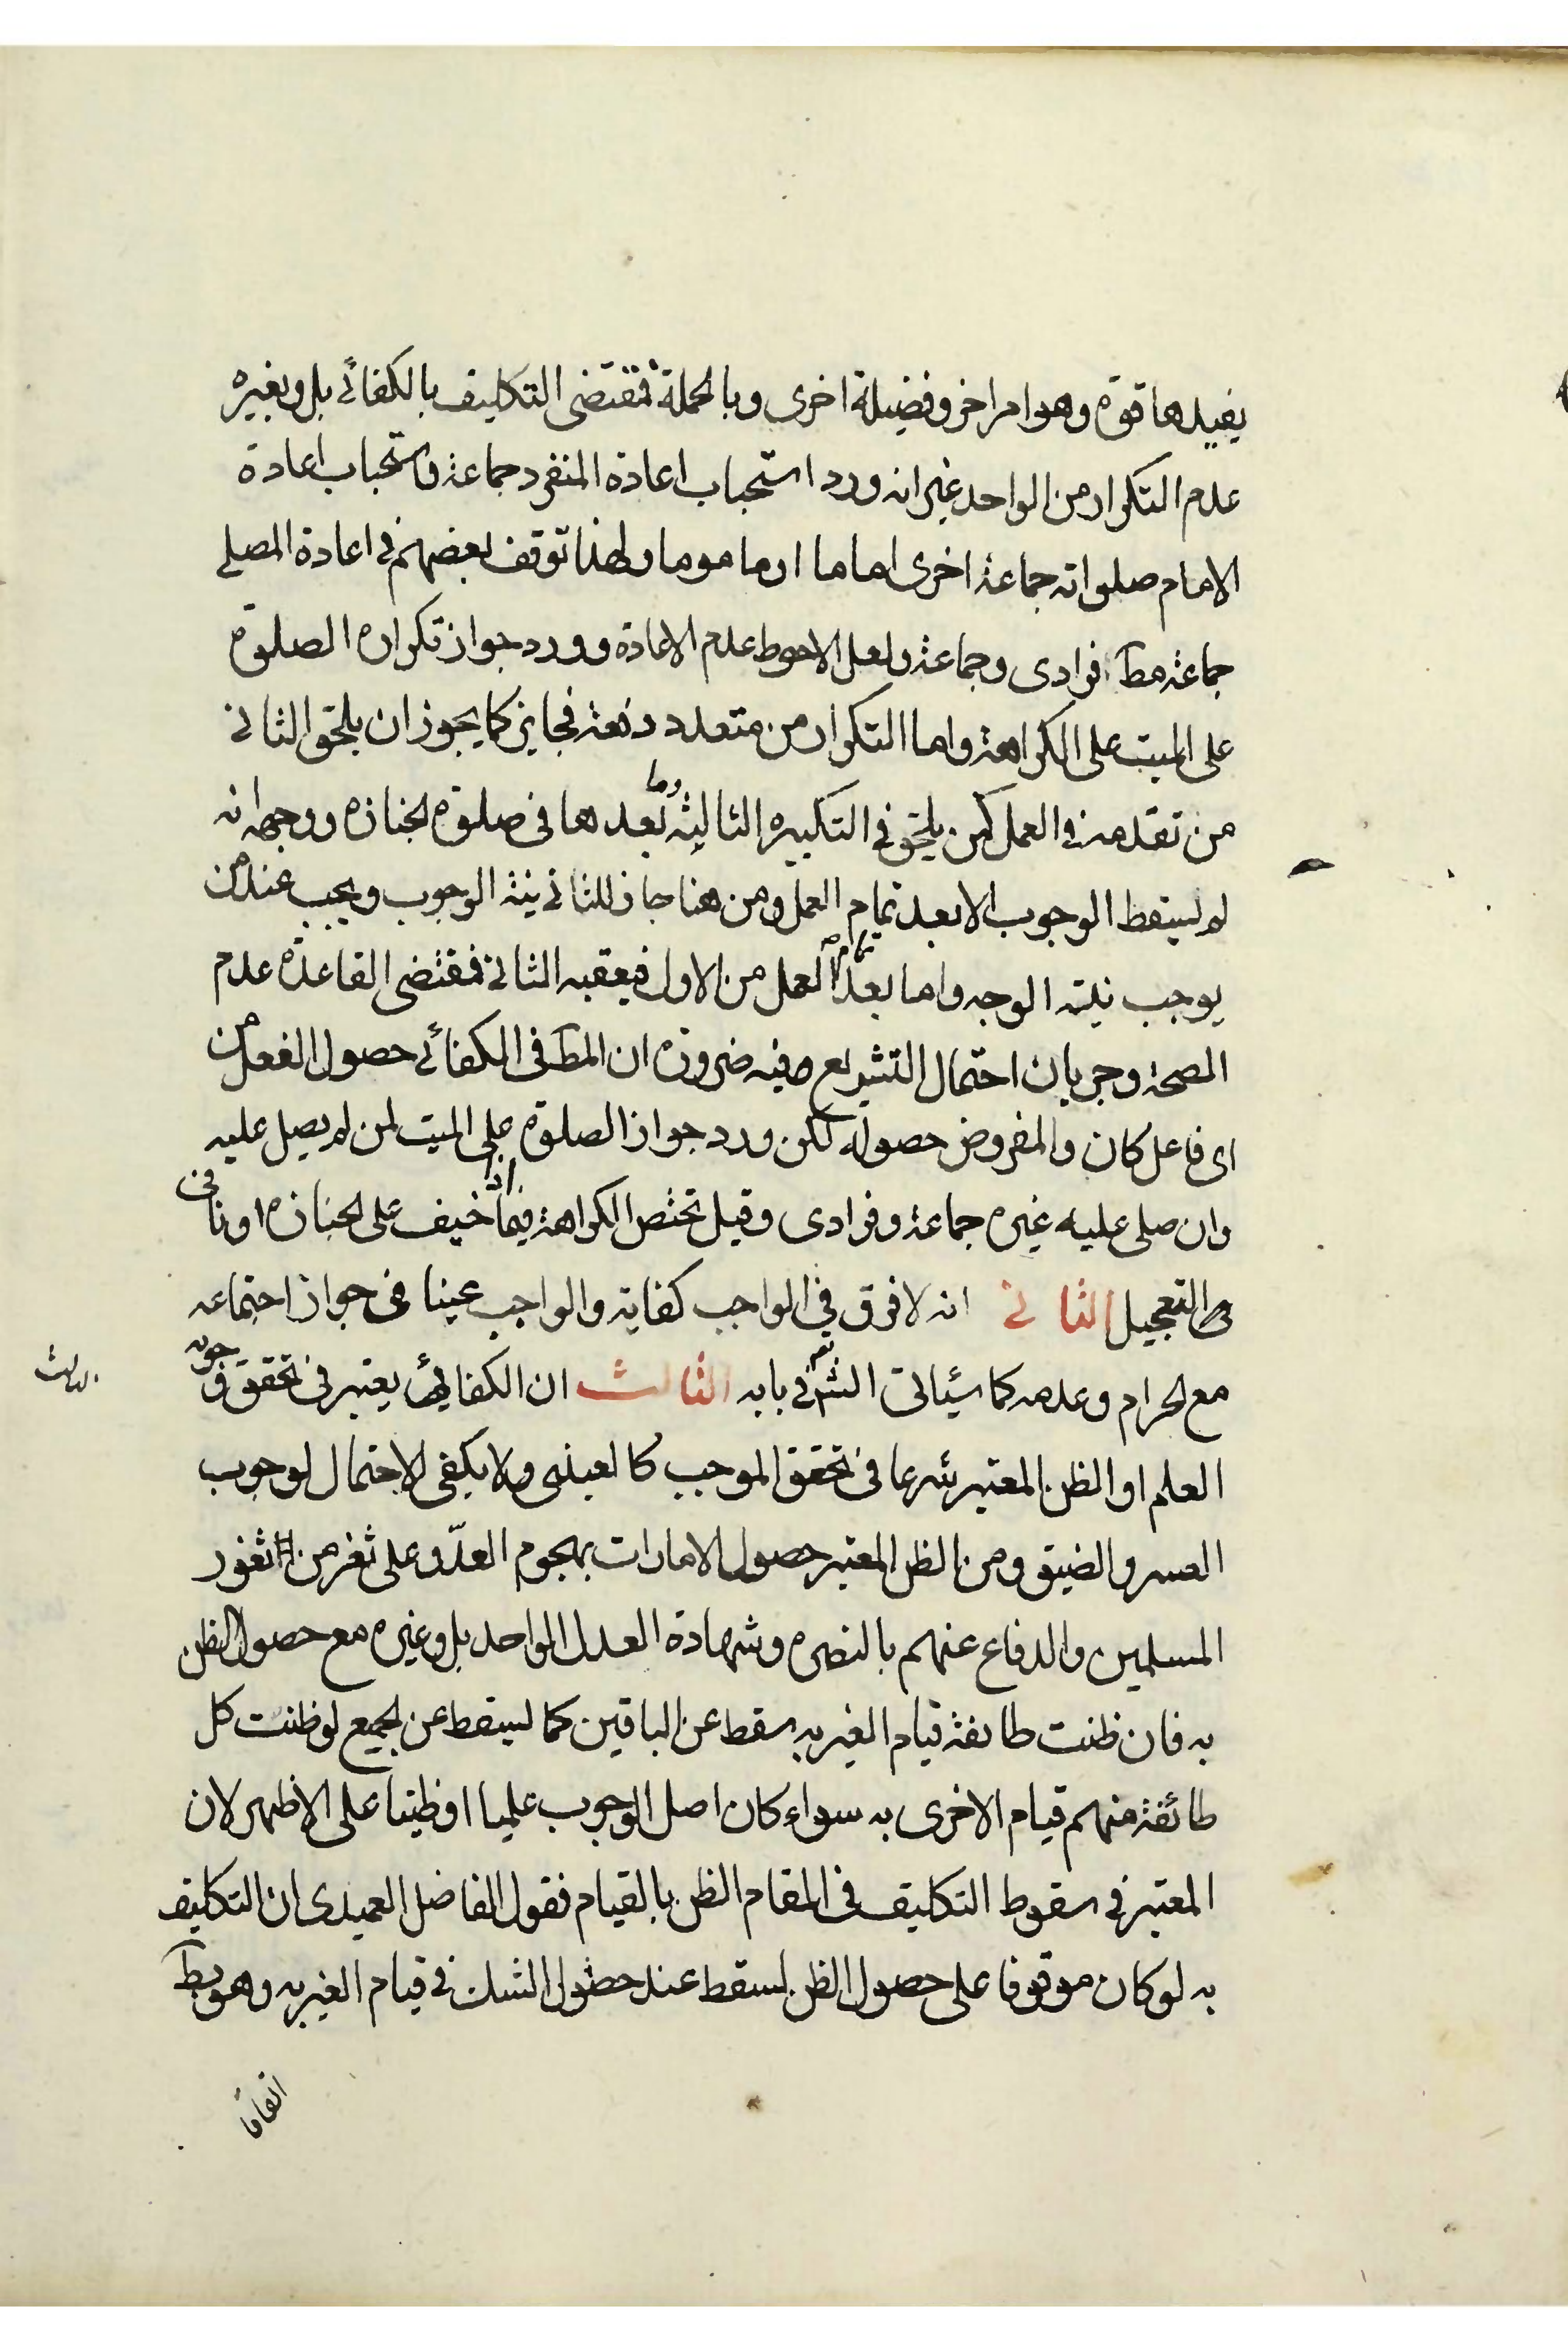 يفيدها قوة وهو امر اخر وفضيلة اخرى وبالجملة فمقتضى التكليف بالكفائي بل وبغيره
عدم التكرار من الواحد غير انه ورد استحباب اعادة المنفرد جماعة واستحباب اعادة
الامام صلواته جماعة اخرى اماما او ماموما ولهذا توقف بعضهم في اعادة المصلي
جماعة مط فرادى وجماعة ولعل الاحوط عدم الاعادة وورد جواز تكراره الصلوة
على الميت على الكراهة واما التكرار من متعدد دفعة فجايز كما يجوز ان يلحق الثاني
من تقدمه في العمل كمن يلحق في التكبيره الثالثة وما بعدها في صلوة الجنازه ووجهه انه
لم يسقط الوجوب الا بعد تمام العمل ومن هنا جاز للثاني نية الوجوب ويجب عند من
يوجب نية الوجه واما بعد تمام العمل من الاول فيعقبه الثاني فمقتضى القاعدة عدم
الصحة وجريان احتمال التشريع فيه ضرورة ان المط في الكفائي حصول الفعل من
اى فاعل كان والمفروض حصوله لكن ورد جواز الصلوة على الميت لمن لم يصل عليه
وان صلى عليه غيره جماعة وفرادى وقيل تختص الكراهة فيما اذا خيف على الجنازه او نافى
التعجيل الثاني انه لا فرق في الواجب كفاية والواجب عينا في جواز اجتماعه
مع الحرام وعدمه كما سيأتي انش تعم في بابه الثالث ان الكفائي يعتبر في تحقق وجوبه
العلم او الظن المعتبر شرعا في تحقق الموجب كالعيني ولا يكفي الاحتمال لوجوب
العسر والضيق ومن الظن المعتبر حصول الامارات بهجوم العدّو على ثغر من اثغور
المسلمين والدفاع عنهم بالنصره وشهادة العدل الواحد بل وغيره مع حصول الظن
به فان ظنت طائفة قيام الغير به سقط عن الباقين كما يسقط عن الجميع لو ظنت كل
طائفة منهم قيام الاخرى به سواء كان اصل الوجوب علميا او ظنيا على الاظهر لان
المعتبر في سقوط التكليف في المقام الظن بالقيام فقول الفاضل العميدى ان التكليف
به لو كان موقوفا على حصول الظن لسقط عند حصول الشك في قيام الغير به وهو بط
اتفاقا
الثالث